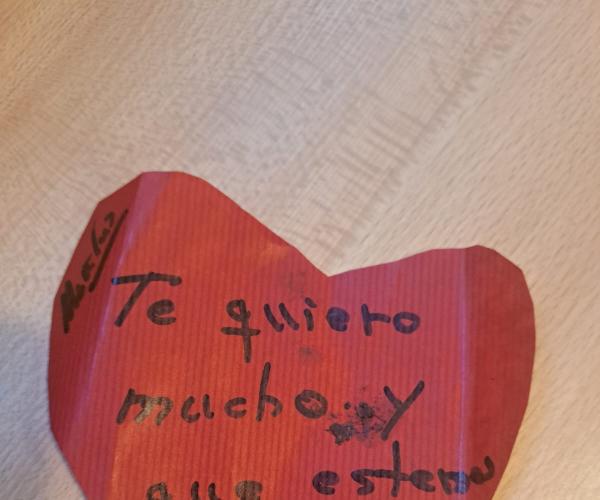 Te quiero
mucho y
que esteme